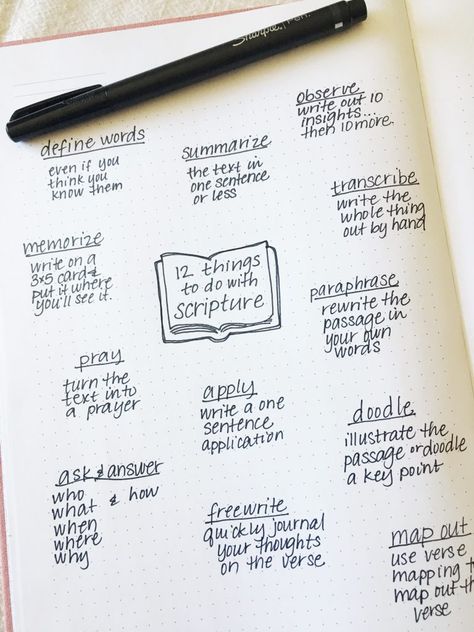 Sharpie. Pen.
observe
write out 10
insights...
then 10 more.
define words
even if you
think you
know them
summarize
the text in
one sentence
or less
transcribe
write the
whole thing
out by hand
memorize
write on a
3x5 card &
put it where
you'll see it.
12 things
to do with
scripture
paraphrase
rewrite the
passage in
your own
words
pray
turn the
text into
a prayer
apply
write a one
sentence
application
doodle
illustrate the
passage or doodle
a key point
ask & answer
who
what & how
when
where
why
freewrite
quickly journal
your thoughts
on the verse
map out
use verse
mapping
map out
verse